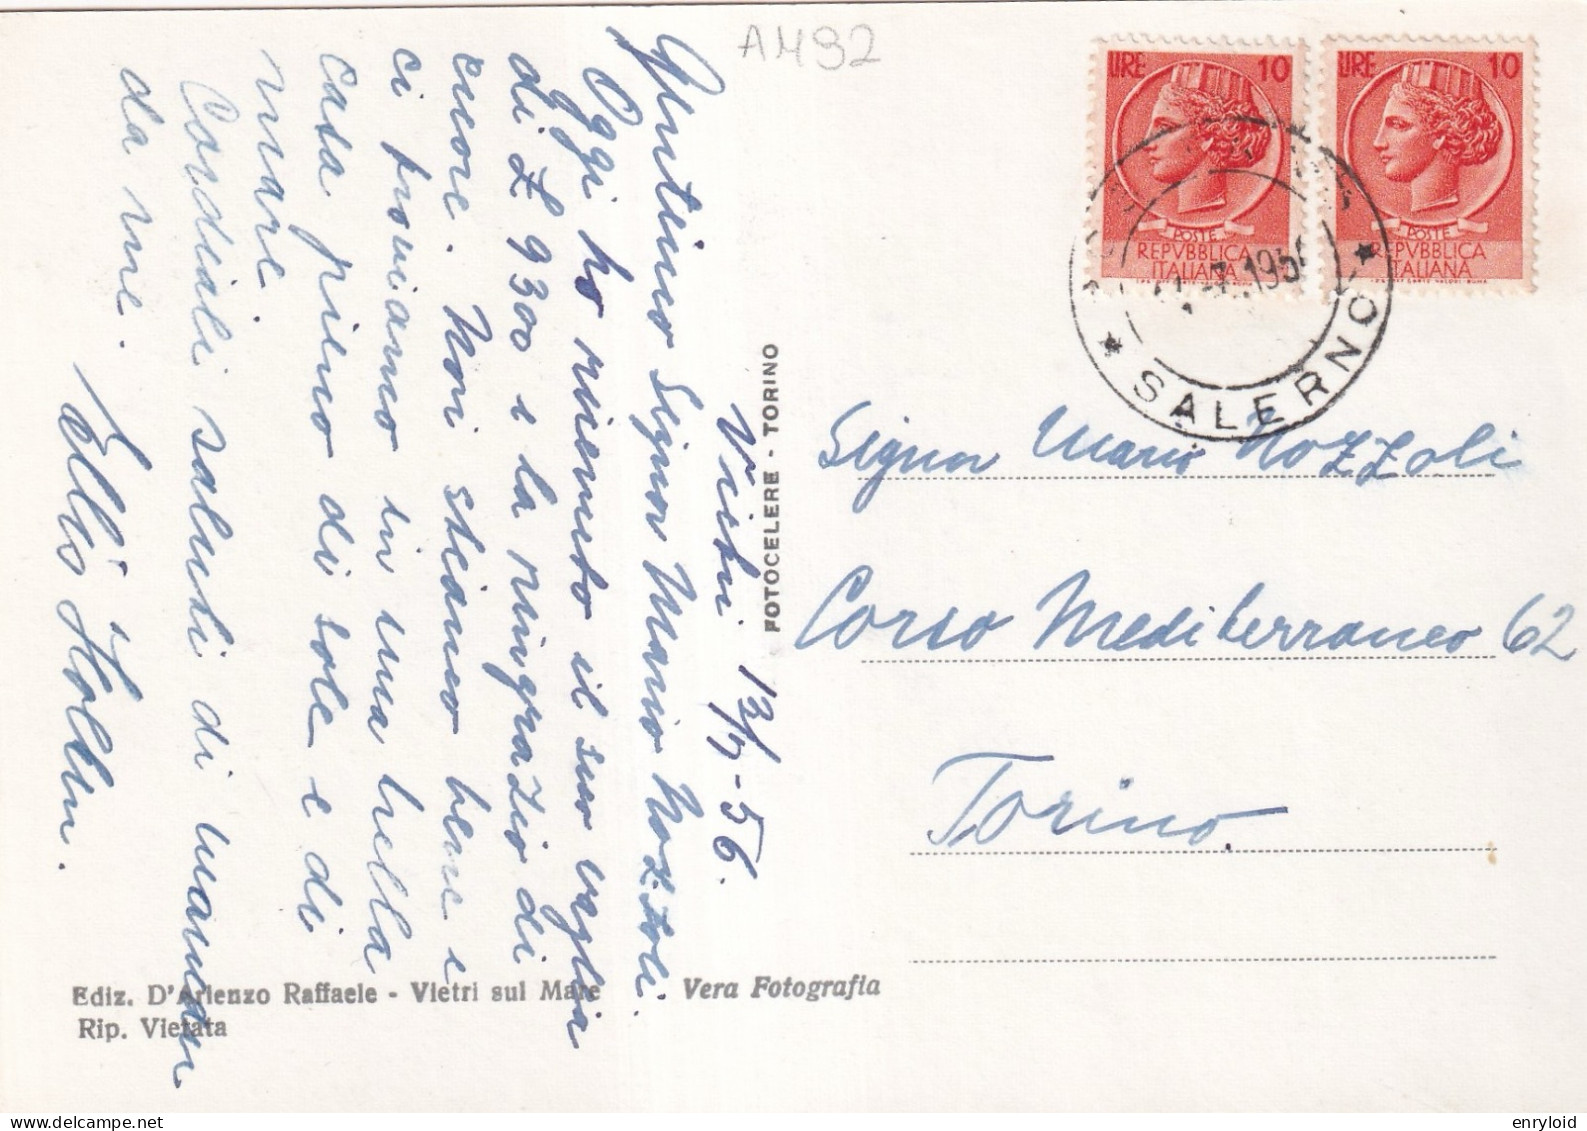 A492
LIRE 10
POSTE
REPVBBLICA
ITALIANA
LIRE 10
POSTE
REPVBBLICA
ITALIANA
SALERNO
Vietri 13/7-56.
Gentilmo Signor Mario Nozzoli.
Oggi ho ricevuto il suo vaglia
di £ 9300 e la ringrazio di
cuore. Noi stiamo bene e
ci troviamo in una bella
casa piena di sole e di
mare.
Cordiali saluti di
da me.
FOTOCELERE - TORINO
Signor Mario Nozzoli
Corso Mediterraneo 62
Torino
Ediz. D'Arienzo Raffaele - Vietri sul Mare
Rip. Vietata
Vera Fotografia
enryloid